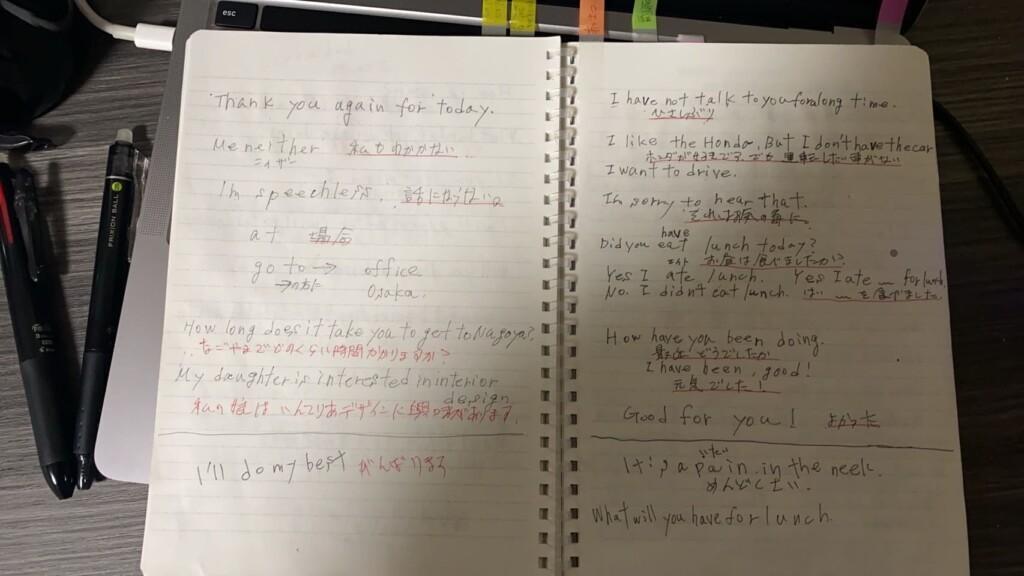 esc
FRIXION BALL
Thank you again for today.
Me neither 私もわかない
ニイザー
I'm speechless. 話にならない。
at 場所
go to → office
→の方に Osaka.
How long does it take you to get to Nagoya?
なごやまでどのくらい時間かかりますか?
My daughter is interested in interior
design
私の娘はいんてりあデザインに興味があります。
I'll do my best がんばりまる
I have not talk to you for along time.
ひさしぶり
I like the Honda. But I don't have the car
I want to drive.
I'm sorry to hear that.
have
Did you eat lunch today?
お昼は食べましたか?
Yes I ate lunch. Yes I ate ~ for lunch.
No. I didn't eat lunch. は~を食べました
How have you been doing.
最近どうでしたか
I have been, good!
元気でした!
Good for you! よかった
いたい
It's a pain in the neek.
めんどくさい.
What will you have for lunch.